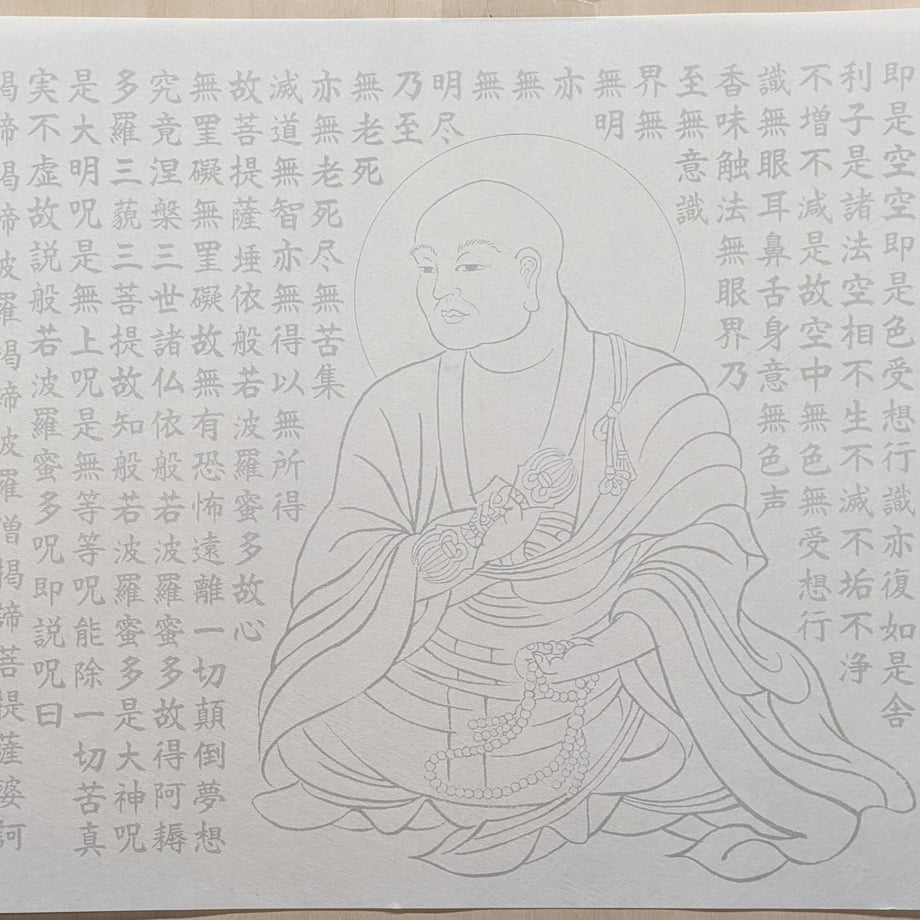 即是空空即是色受想行識亦復如是舎
利子是諸法空相不生不滅不垢不浄
不増不減是故空中無色無受想行
識無眼耳鼻舌身意無色声
香味触法無眼界乃
至無意識
界無
無明
亦
無
無
明尽
乃至
無老死
亦無老死尽無苦集
滅道無智亦無得以無所得
故菩提薩埵依般若波羅蜜多故心
無罣礙無罣礙故無有恐怖遠離一切顛倒夢想
究竟涅槃三世諸仏依般若波羅蜜多故得阿耨
多羅三藐三菩提故知般若波羅蜜多是大神呪
是大明呪是無上呪是無等等呪能除一切苦真
実不虚故説般若波羅蜜多呪即説呪曰
掲諦掲諦波羅掲諦波羅僧掲諦菩提薩婆訶